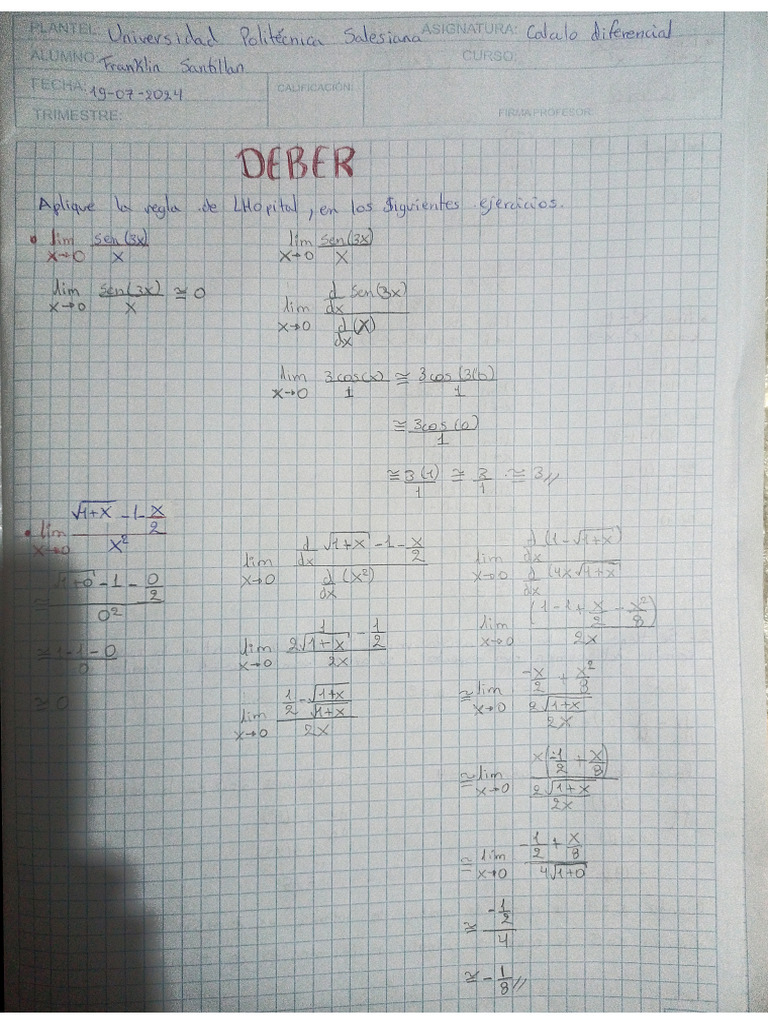 PLANTEL: Universidad Politécnica Salesiana ASIGNATURA: Calculo diferencial
ALUMNO: Franklin Santillan CURSO:
FECHA: 19-07-2024 CALIFICACIÓN:
TRIMESTRE: FIRMA PROFESOR:
DEBER
Aplique la regla de LHopital, en los siguientes ejercicios.
• lim x→0 sen(3x)/x
lim x→0 sen(3x)/x ≅ 0
lim x→0 sen(3x)/x
lim x→0 d/dx sen(3x) / d/dx (x)
lim x→0 3cos(x)/1 ≅ 3cos(3(0))/1
≅ 3cos(0)/1
≅ 3(1)/1 ≅ 3/1 ≅ 3//
• lim x→0 (√1+x - 1 - x/2)/x²
≅ (√1+0 - 1 - 0/2)/0²
≅ 1-1-0/0
≅ 0
lim x→0 (d/dx √1+x - 1 - x/2) / (d/dx (x²))
lim x→0 (1/2√1+x - 1/2)/2x
lim x→0 (1/2 - √1+x/√1+x)/2x
lim x→0 d/dx (1-√1+x) / d/dx (4x√1+x)
lim x→0 (1-1+x/2 - x²/8)/2x
≅ lim x→0 (-x/2 + x²/8)/(2√1+x/2x)
≅ lim x→0 x(-1/2 + x/8)/(2√1+x/2x)
≅ lim x→0 (-1/2 + x/8)/4√1+0
≅ (-1/2)/4
≅ -1/8//